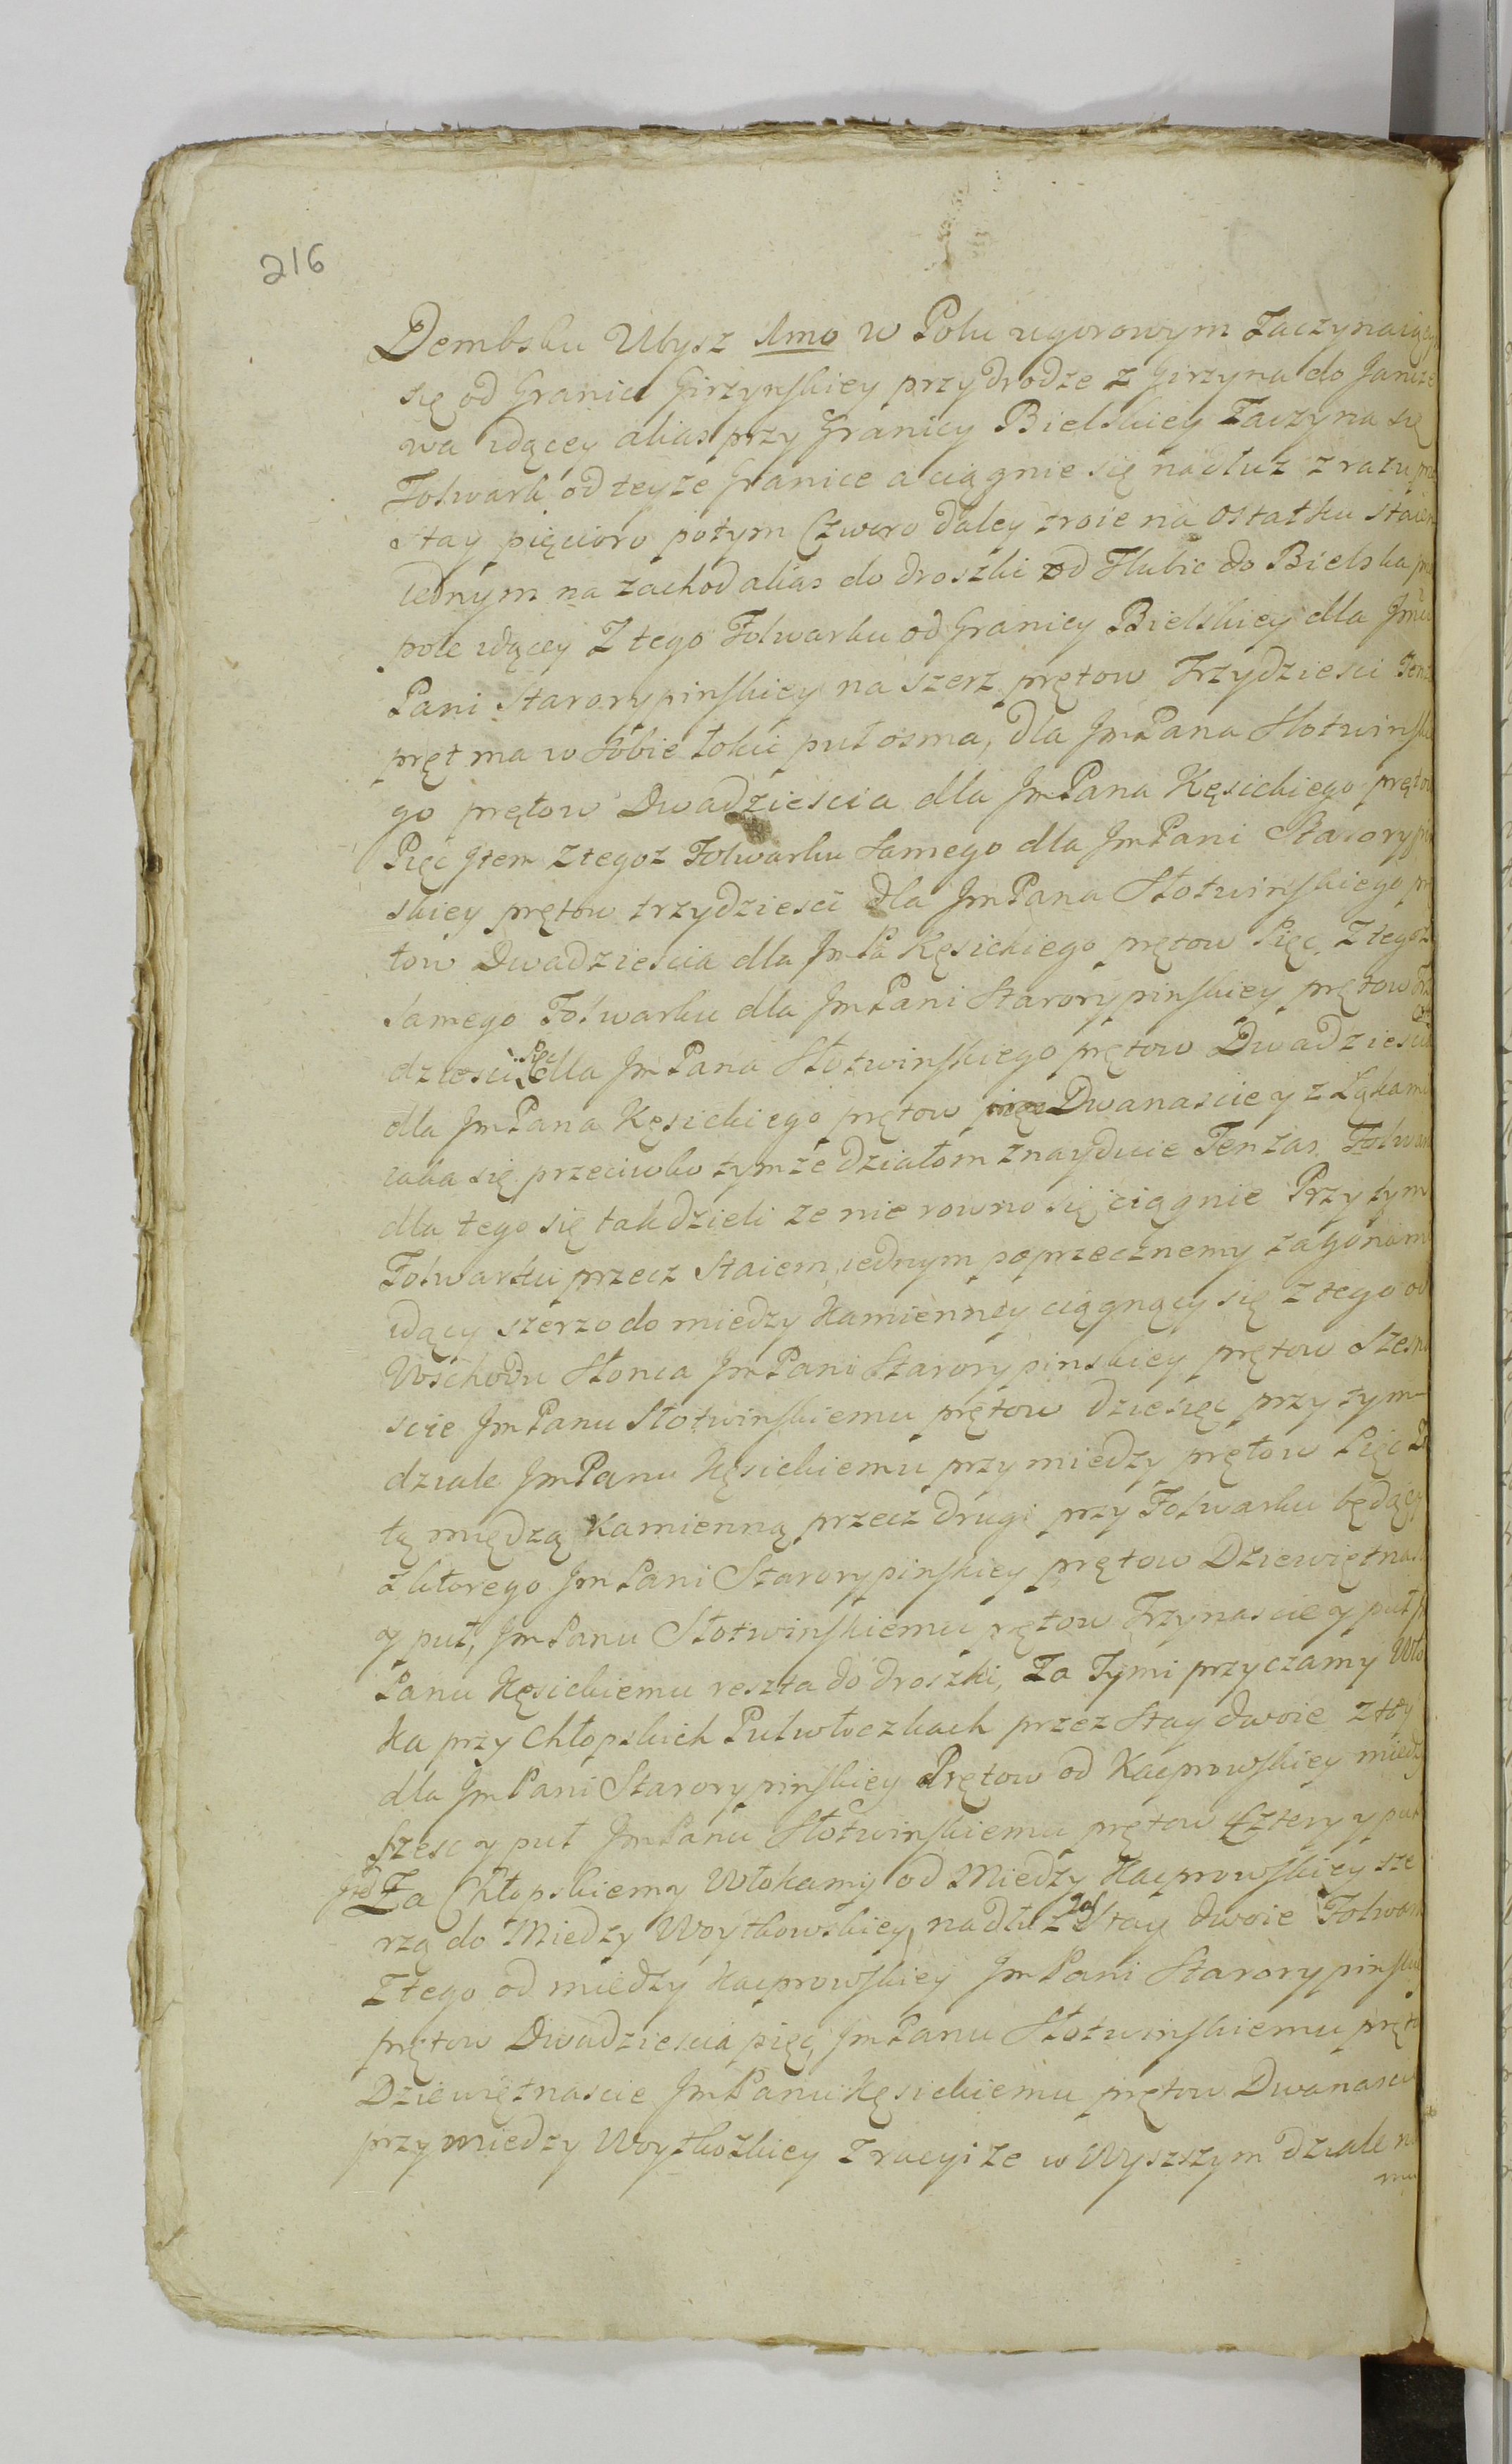 216
Dembsku Ubysz Amo w Polu ugorowym Zaczynaiący
się od Granice Girzynskiey przy drodze z Girzyna do Janisze
wa idącey alias przy Granicy Bielskiey Zaczyna się
Folwark od teyze Granice a ciągnie się nadłuz z razu prze
Stay pięcioro potym Czworo daley troie na ostatku staiem
iednym na zachod alias do droszki od Hlubic do Bielska prze
pole idącey Z tego Folwarku od Granicy Bielskiey dla Jmci
Pani Starorypinskiey na szerz prętow Trzydziesci Tenze
pręt ma w sobie łokci puł osma, dla Jm Pana Słotwinskie
go prętow Dwadziescia dla Jm Pana Kęsickiego prętow
Pięc Item Z tegoz Folwarku Samego dla Jm Pani Starorypin
skiey prętow trzydziesci dla Jm Pana Słotwinskiego prę
tow Dwadziescia dla Jm Pa Kęsickiego prętow Pięc. Z tegoz
samego Folwarku dla Jm Pani Starorypinskiey prętow Trzy
dziesci dla Jm Pana Słotwinskiego prętow Dwadziescia
dla Jm Pana Kęsickiego prętow Dwanascie y z Łąkami
iaka się przeciwko tymze działom znayduie Tenzas Folwark
dla tego się tak dzieli ze nie rowno się ciągnie Przy tym
Folwarku przecz Staiem iednym poprzecznemy zagonami
idący szerzo do miedzy Kamienney ciągnący się z tego od
Wschodu Słonca Jm Pani Starorypinskiey prętow Szesna
scie Jm Panu Słotwinskiemu prętow dziesięc przy tym
dziale Jm Panu Kęsickiemu przy miedzy prętow Pięc Za
tą międzą Kamienną przecz drugi przy Folwarku będący
z ktorego Jm Pani Starorypinskiey prętow Dziewiętnasc
y puł, Jm Panu Słotwinskiemu prętow Trzynascie y puł Jm
Panu Kęsickiemu reszta do droszki, Za Tymi przyczamy Wło
ka przy Chłopskich Pułwłoczkach przez Stay dwoie z tey
dla Jm Pani Starorypinskiey Prętow od Kacprowskiey miedzy
Szesc y puł Jm Panu Słotwinskiemu prętow Cztery y puł
Za Chłopskiemy Włokamy od Miedzy Kacprowskiey sze
rzą do Miedzy Woytkowskiey, nadłuz zas Stay dwoie Folwark
Z tego od miedzy Kacprowskiey Jm Pani Starorypinskiey
prętow Dwadziescia pięc, Jm Panu Słotwinskiemu prętow
Dziewiętnascie Jm Panu Kęsickiemu prętow Dwanascie
przy miedzy Woytkozkiey z racyi ze w Wyszszym dziale